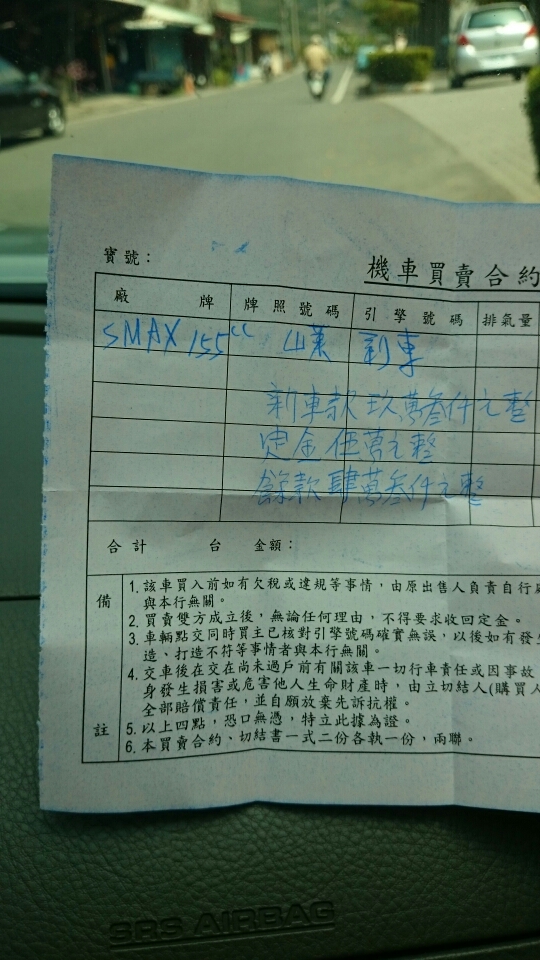 寶號：
機車買賣合約
廠 牌 牌照號碼 引擎號碼 排氣量
SMAX 155cc 山葉 新車
新車款玖萬參仟元整
定金伍萬元整
餘款肆萬參仟元整
合計 台 金額：
備註
1. 該車買入前如有欠稅或違規等事情，由原出售人負責自行處
與本行無關。
2. 買賣雙方成立後，無論任何理由，不得要求收回定金。
3. 車輛點交同時買主已核對引擎號碼確實無誤，以後如有發生
造、打造不符等事情者與本行無關。
4. 交車後在交在尚未過戶前有關該車一切行車責任或因事故
身發生損害或危害他人生命財產時，由立切結人(購買人
全部賠償責任，並自願放棄先訴抗權。
5. 以上四點，恐口無憑，特立此據為證。
6. 本買賣合約、切結書一式二份各執一份，兩聯。
SRS AIRBAG